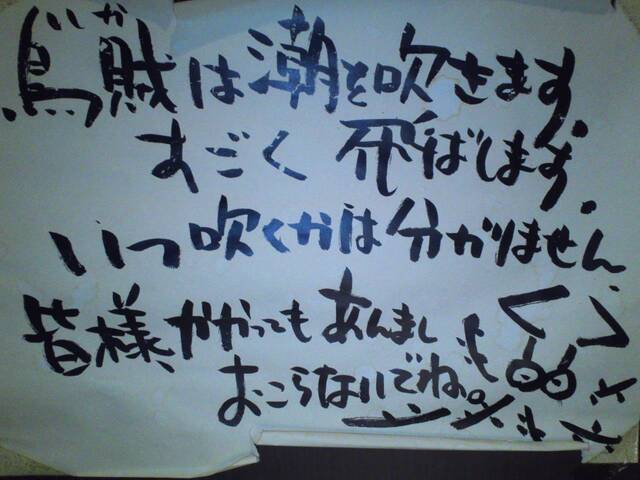 いか
烏賊は潮を吹きます。
すごく飛ばします。
いつ吹くかは分かりません
皆様、かかってもあんまし
おこらないでね。